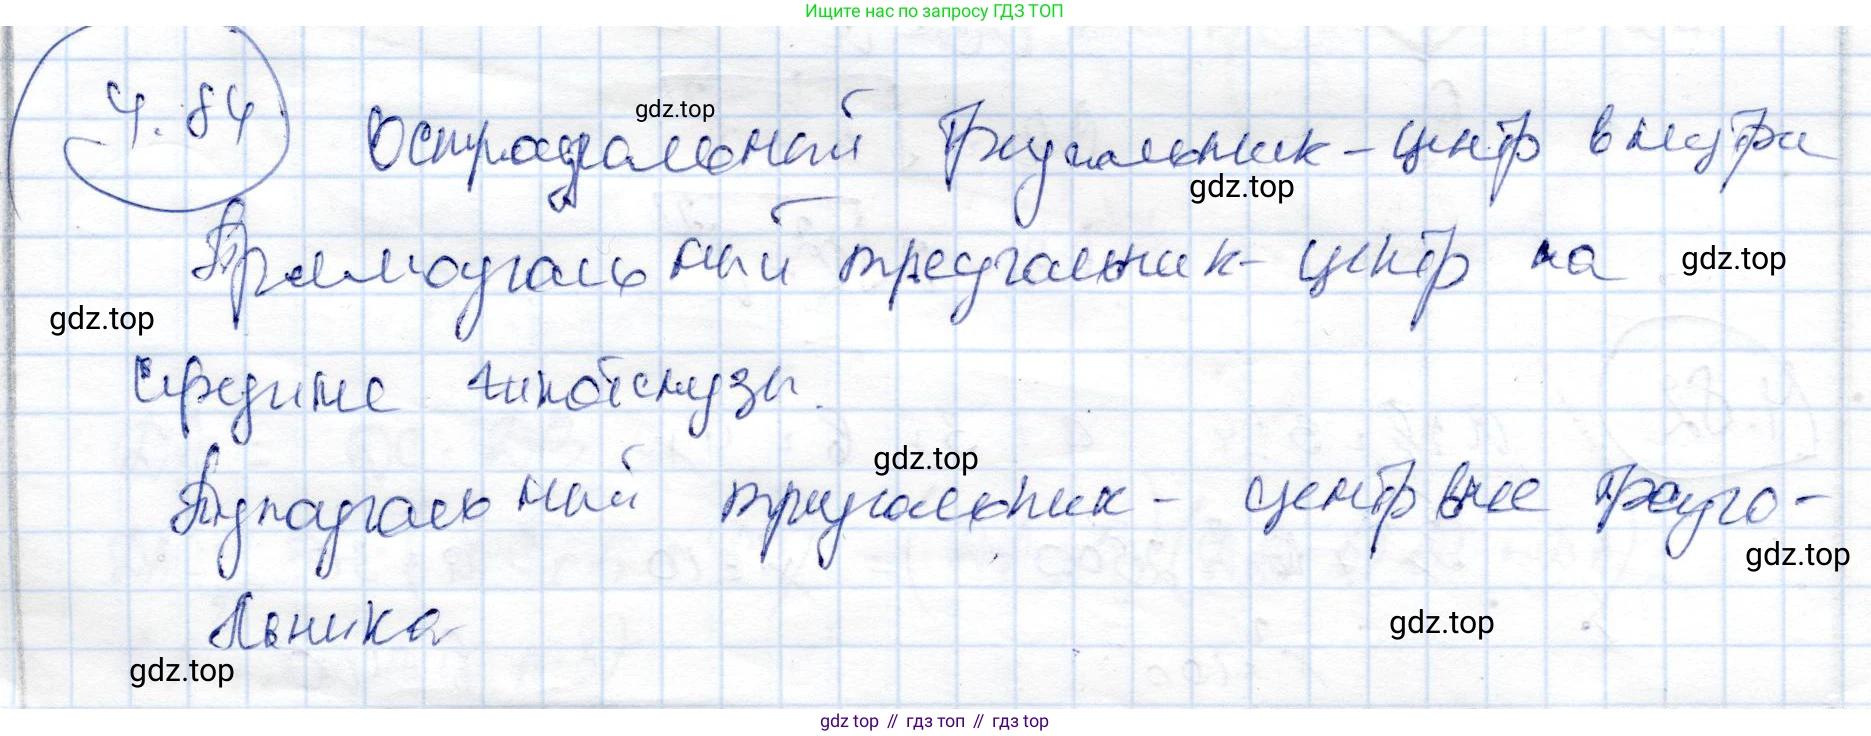 Ищите нас по запросу ГДЗ ТОП
4.84 Остроугольный треугольник - центр внутри
Прямоугольный треугольник - центр на
середине гипотенузы.
Тупоугольный треугольник - центр вне треуго-
льника
gdz.top
gdz.top
gdz.top
gdz.top
gdz.top
gdz.top
gdz.top
gdz.top
gdz top // гдз топ // гдз top